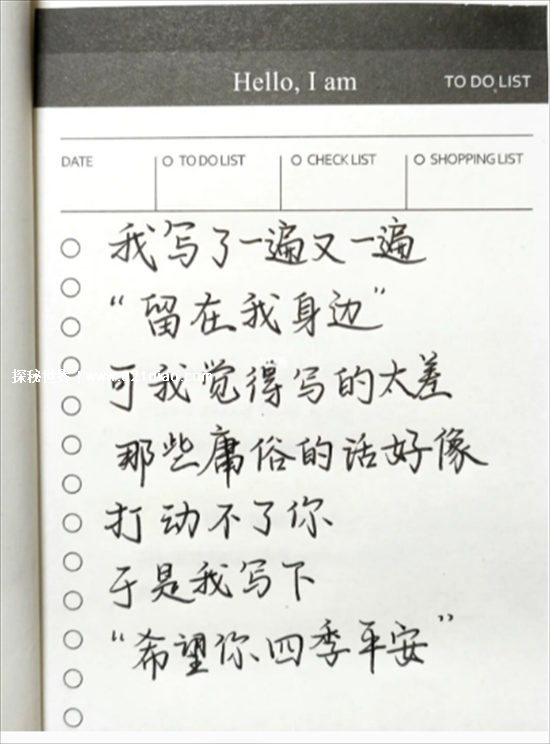 Hello, I am
TO DO LIST
DATE
TO DO LIST
CHECK LIST
SHOPPING LIST
我写了一遍又一遍
“留在我身边”
探秘世界
可我觉得写的太差
那些庸俗的话好像
打动不了你
于是我写下
“希望你四季平安”